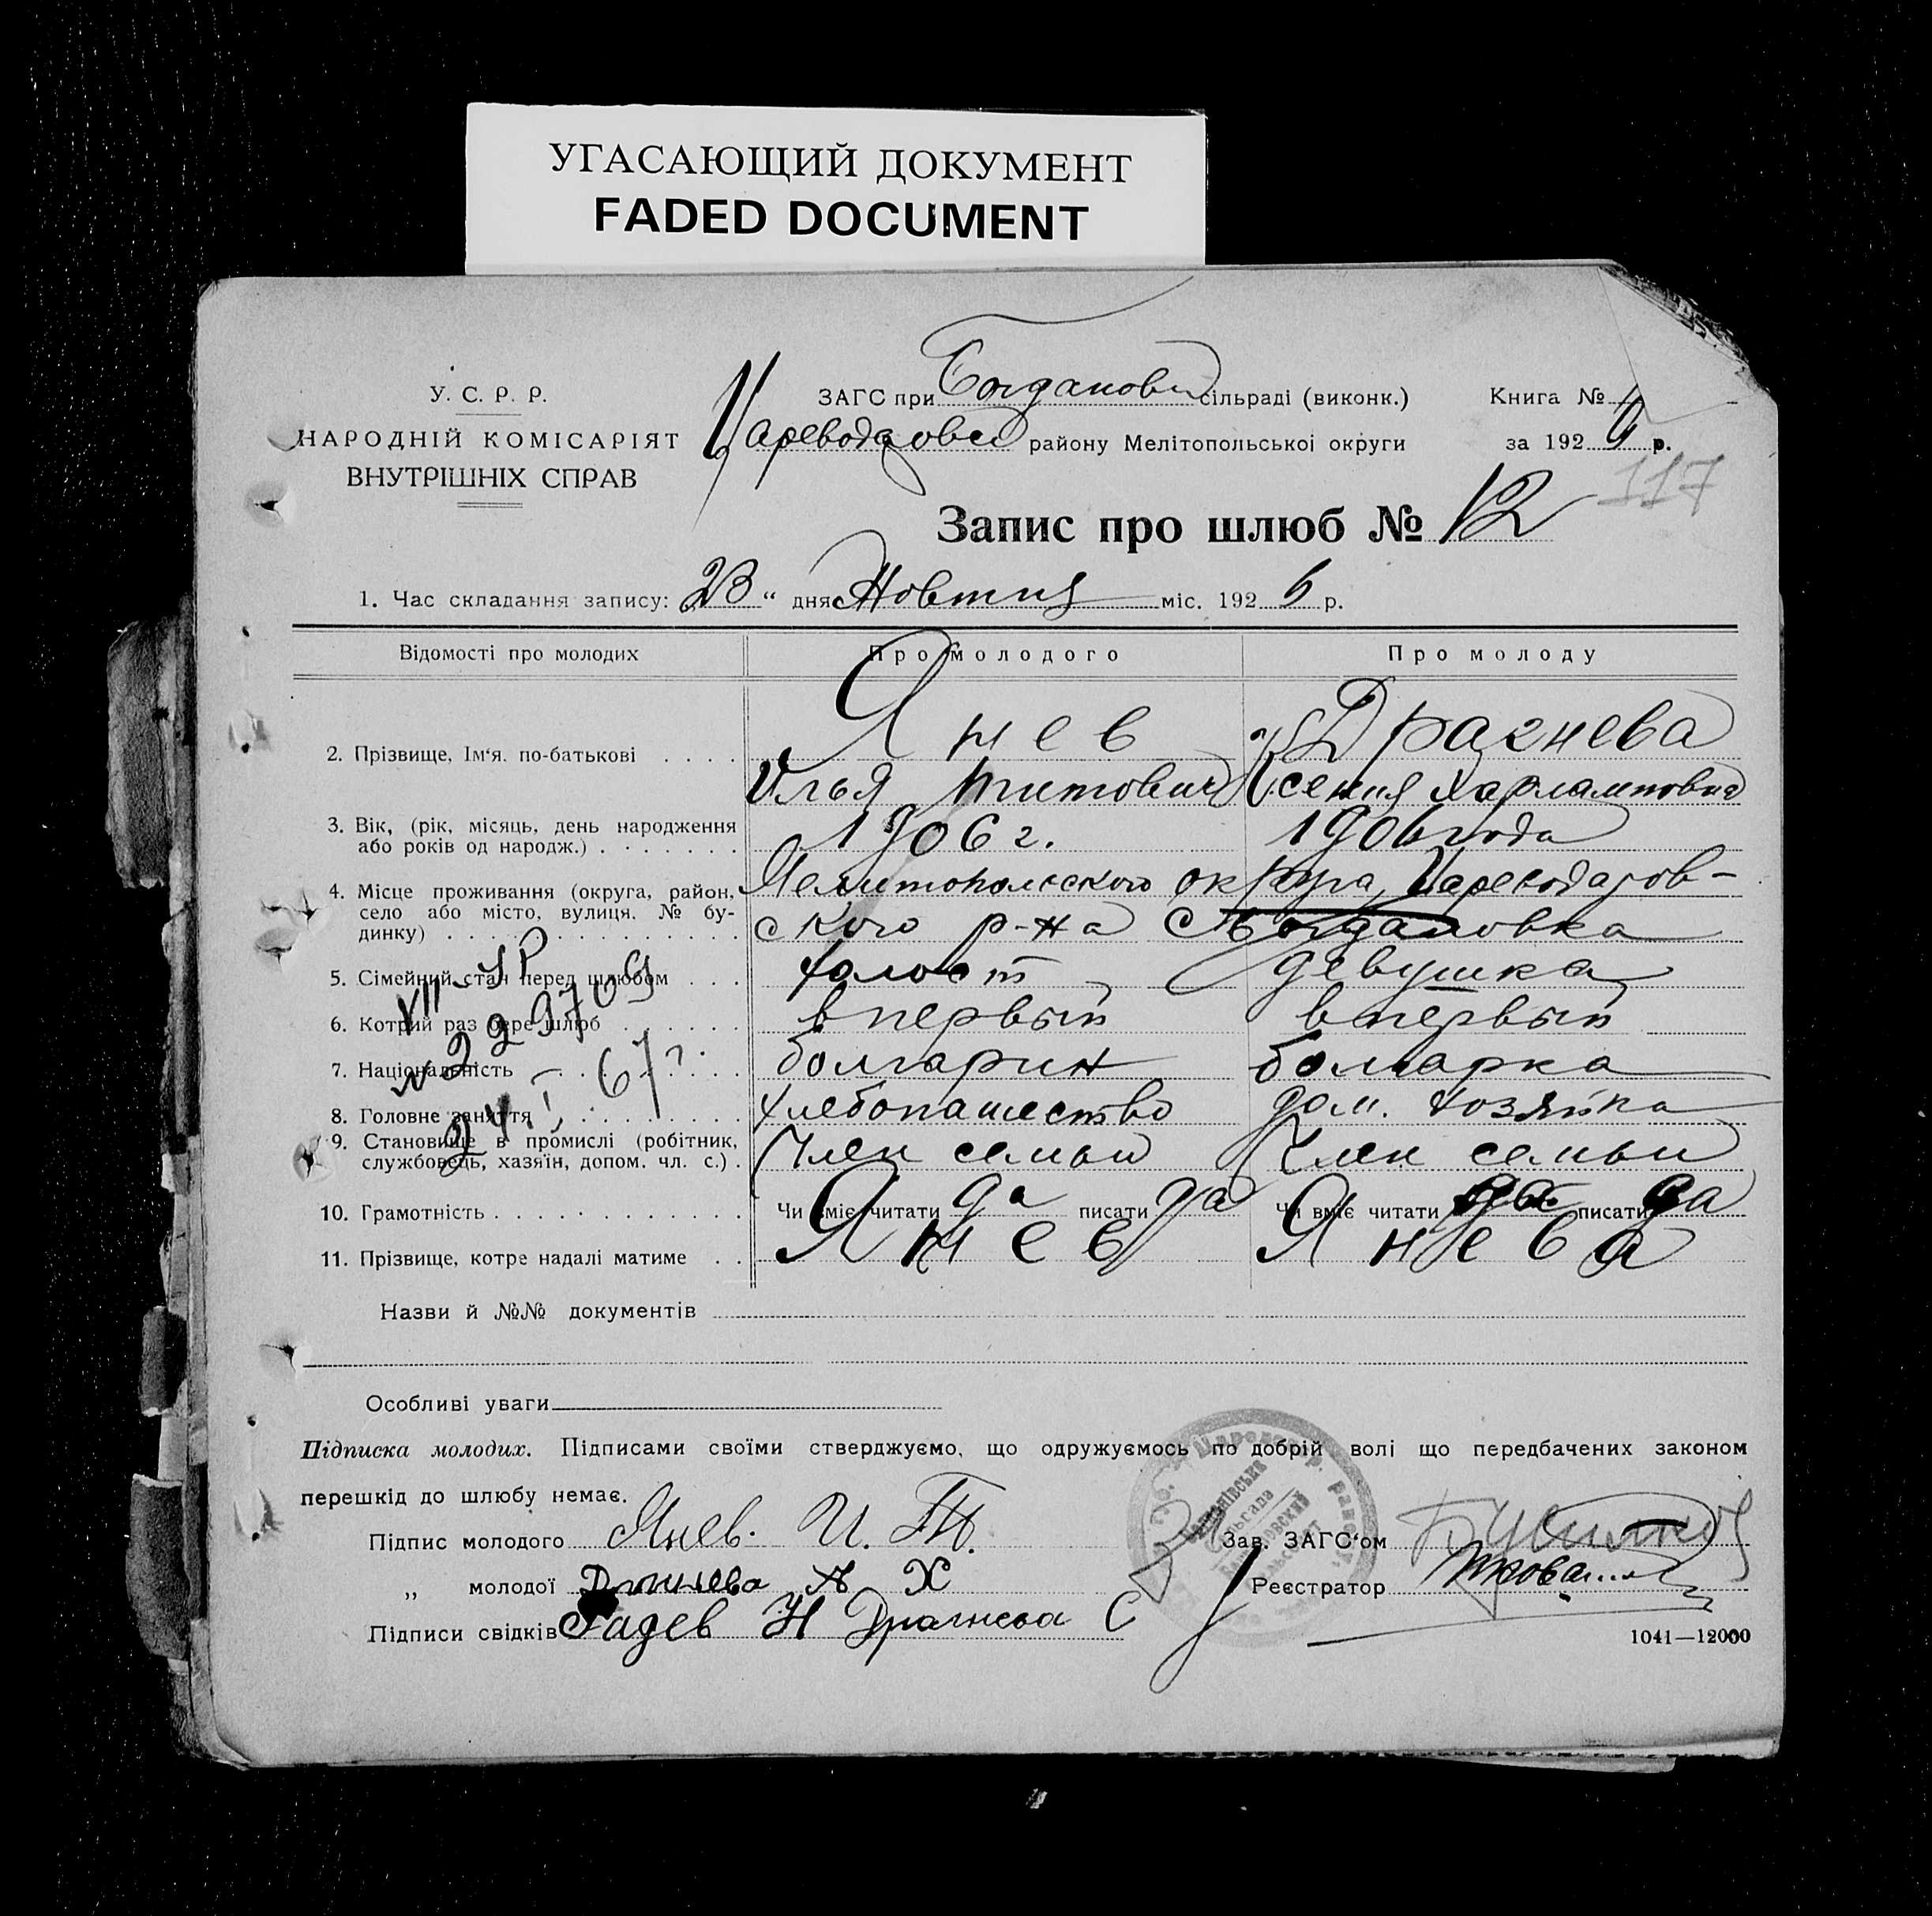 УГАСАЮЩИЙ ДОКУМЕНТ
FADED DOCUMENT
У. С. Р. Р.
НАРОДНІЙ КОМІСАРІЯТ
ВНУТРІШНІХ СПРАВ
ЗАГС при сільраді (виконк.)
району Мелітопольської округи
Книга №
за 192 р.
117
Запис про шлюб № 12
1. Час складання запису: 23 " дня Жовтня міс. 1926 р.
Відомості про молодих Про молодого Про молоду
2. Прізвище, Ім'я. по-батькові Янев Драгнева
Илья Титович Ксения Харламповна
3. Вік, (рік, місяць, день народження
або років од народж.) 1906 г. 1906 года
4. Місце проживання (округа, район,
село або місто, вулиця. № бу-
динку)
Мелитопольского округа, Цареводаров-
ского р-на С Богдановка
5. Сімейний стан перед шлюбом холост девушка
6. Котрий раз бере шлюб впервый впервый
7. Національність болгарин болгарка
8. Головне заняття хлебопашество дом. хозяйка
9. Становище в промислі (робітник,
службовець, хазяїн, допом. чл. с.) Член семьи Член семьи
10. Грамотність Чи вміє читати да писати да Чи вміє читати да писати да
11. Прізвище, котре надалі матиме Янев Янева
VII-ЯР
№ 229709
24. I. 67 г.
Назви й №№ документів
Особливі уваги
Підписка молодих. Підписами своїми стверджуємо, що одружуємось по добрій волі що передбачених законом
перешкід до шлюбу немає.
Підпис молодого Янев. И. Т.
„ молодої Х
Підписи свідків Радев Н Драгнева С
Зав. ЗАГС'ом
Реєстратор
1041—12000